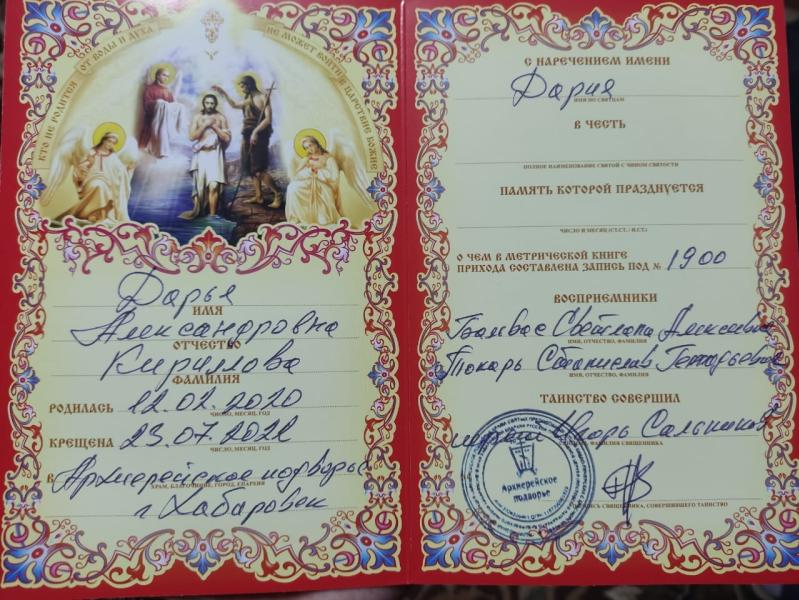 КТО НЕ РОДИТСЯ ОТ ВОДЫ И ДУХА НЕ МОЖЕТ ВОЙТИ В ЦАРСТВИЕ БОЖИЕ
Дарья
ИМЯ
Александровна
ОТЧЕСТВО
Кириллова
ФАМИЛИЯ
РОДИЛАСЬ 12.02.2020
ЧИСЛО, МЕСЯЦ, ГОД
КРЕЩЕНА 23.07.2022
ЧИСЛО, МЕСЯЦ, ГОД
В Архиерейское подворье
ХРАМ, БЛАГОЧИНИЕ, ГОРОД, ЕПАРХИЯ
г. Хабаровск
С НАРЕЧЕНИЕМ ИМЕНИ
Дария
ИМЯ ПО СВЯТЦАМ
В ЧЕСТЬ
ПОЛНОЕ НАИМЕНОВАНИЕ СВЯТОЙ С ЧИНОМ СВЯТОСТИ
ПАМЯТЬ КОТОРОЙ ПРАЗДНУЕТСЯ
ЧИСЛО И МЕСЯЦ (СТ.СТ. / Н.СТ.)
О ЧЕМ В МЕТРИЧЕСКОЙ КНИГЕ
ПРИХОДА СОСТАВЛЕНА ЗАПИСЬ ПОД № 1900
ВОСПРИЕМНИКИ
Светлана Алексеевна
ИМЯ, ОТЧЕСТВО, ФАМИЛИЯ
Токарь Станислав
ИМЯ, ОТЧЕСТВО, ФАМИЛИЯ
ТАИНСТВО СОВЕРШИЛ
иерей Игорь Сальников
ФАМИЛИЯ СВЯЩЕННИКА
Архиерейское
подворье
ПОДПИСЬ СВЯЩЕННИКА, СОВЕРШИВШЕГО ТАИНСТВО